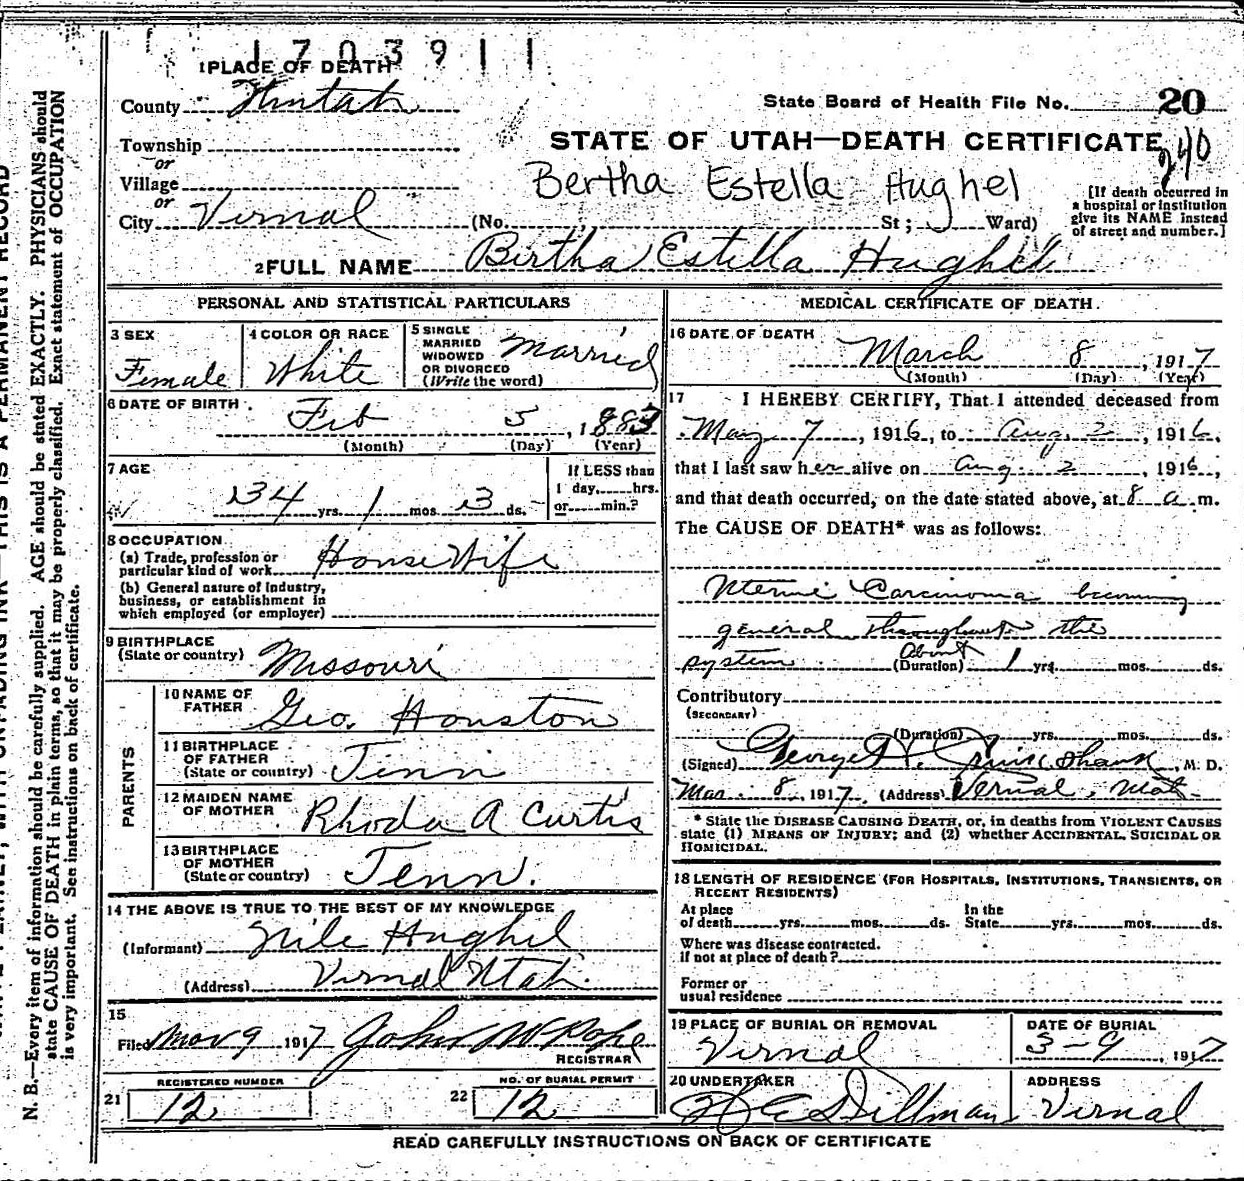 1703911
1 PLACE OF DEATH
County Uintah
State Board of Health File No. 20
240
STATE OF UTAH—DEATH CERTIFICATE
Township
or
Village
or
City Vernal (No. St; Ward)
Bertha Estella Hughel
[If death occurred in a hospital or institution give its NAME instead of street and number.]
2 FULL NAME Bertha Estella Hughel
PERSONAL AND STATISTICAL PARTICULARS
3 SEX
Female
4 COLOR OR RACE
White
5 SINGLE
MARRIED
WIDOWED
OR DIVORCED
(Write the word)
Married
6 DATE OF BIRTH
Feb 5, 1883
(Month) (Day) (Year)
7 AGE
34 yrs. 1 mos. 3 ds.
If LESS than
1 day, hrs.
or min.?
8 OCCUPATION
(a) Trade, profession or
particular kind of work House Wife
(b) General nature of industry,
business, or establishment in
which employed (or employer)
9 BIRTHPLACE
(State or country) Missouri
PARENTS
10 NAME OF
FATHER Geo. Houston
11 BIRTHPLACE
OF FATHER
(State or country) Tenn
12 MAIDEN NAME
OF MOTHER Rhoda A Curtis
13 BIRTHPLACE
OF MOTHER
(State or country) Tenn.
14 THE ABOVE IS TRUE TO THE BEST OF MY KNOWLEDGE
(Informant) Nile Hughel
(Address) Vernal Utah.
15
Filed Mar 9 1917 John W Pope
REGISTRAR
REGISTERED NUMBER
21 12
NO. OF BURIAL PERMIT
22 12
MEDICAL CERTIFICATE OF DEATH
16 DATE OF DEATH
March 8, 1917
(Month) (Day) (Year)
17 I HEREBY CERTIFY, That I attended deceased from
May 7, 1916, to Aug. 2, 1916,
that I last saw her alive on Aug. 2, 1916,
and that death occurred, on the date stated above, at 8 a m.
The CAUSE OF DEATH* was as follows:
Uterine Carcinoma becoming
general throughout the
system About (Duration) 1 yrs. mos. ds.
Contributory
(SECONDARY)
(Duration) yrs. mos. ds.
(Signed) George V. Cruikshank, M. D.
Mar. 8, 1917 (Address) Vernal, Utah
* State the DISEASE CAUSING DEATH, or, in deaths from VIOLENT CAUSES
state (1) MEANS OF INJURY; and (2) whether ACCIDENTAL, SUICIDAL OR
HOMICIDAL.
18 LENGTH OF RESIDENCE (FOR HOSPITALS, INSTITUTIONS, TRANSIENTS, OR
RECENT RESIDENTS)
At place
of death yrs. mos. ds.
In the
State yrs. mos. ds.
Where was disease contracted.
if not at place of death?
Former or
usual residence
19 PLACE OF BURIAL OR REMOVAL
Vernal
DATE OF BURIAL
3-9, 1917
20 UNDERTAKER
Dillman
ADDRESS
Vernal
READ CAREFULLY INSTRUCTIONS ON BACK OF CERTIFICATE
THIS IS A PERMANENT RECORD
N. B.—Every item of information should be carefully supplied. AGE should be stated EXACTLY. PHYSICIANS should
state CAUSE OF DEATH in plain terms, so that it may be properly classified. Exact statement of OCCUPATION
is very important. See instructions on back of certificate.